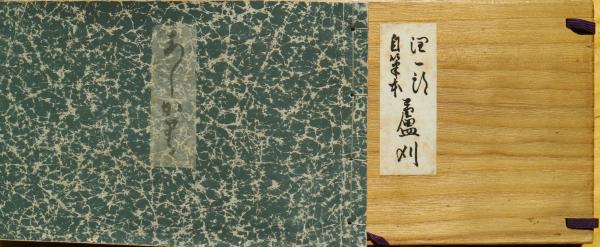 あしかり
潤一郎
自筆本
蘆刈